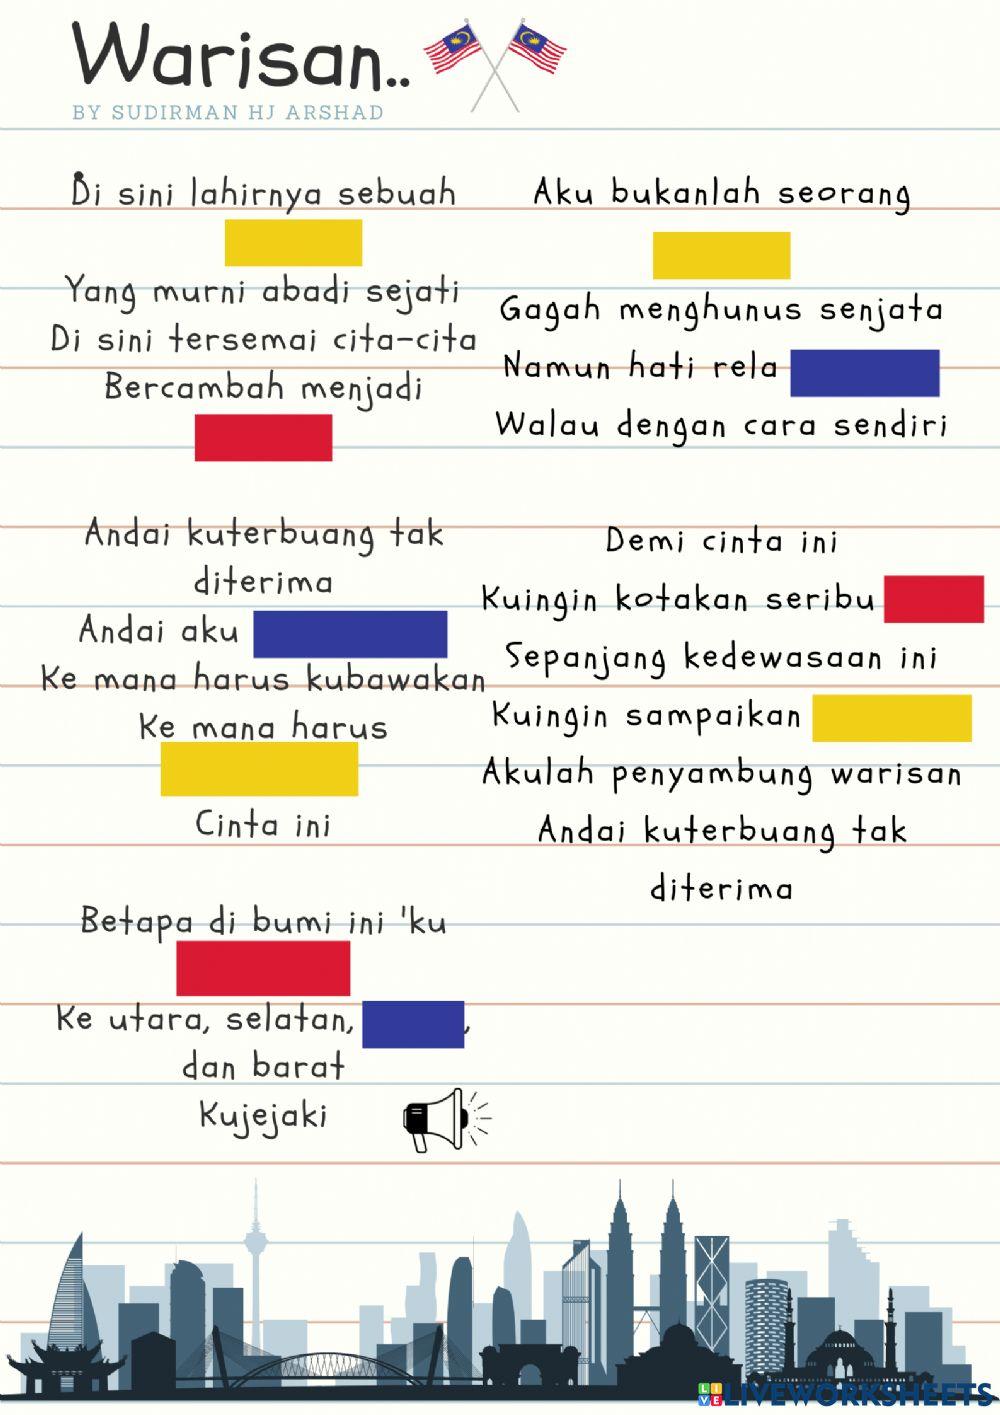 Warisan..
BY SUDIRMAN HJ ARSHAD
Di sini lahirnya sebuah
Yang murni abadi sejati
Di sini tersemai cita-cita
Bercambah menjadi
Andai kuterbuang tak
diterima
Andai aku
Ke mana harus kubawakan
Ke mana harus
Cinta ini
Betapa di bumi ini 'ku
Ke utara, selatan, ,
dan barat
Kujejaki
Aku bukanlah seorang
Gagah menghunus senjata
Namun hati rela
Walau dengan cara sendiri
Demi cinta ini
Kuingin kotakan seribu
Sepanjang kedewasaan ini
Kuingin sampaikan
Akulah penyambung warisan
Andai kuterbuang tak
diterima
LIVE LIVEWORKSHEETS